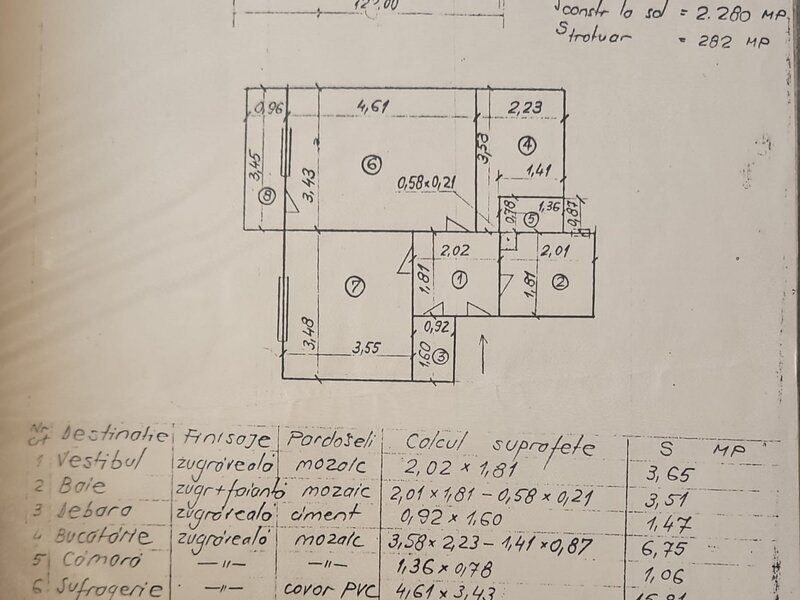 constr la sol = 2.280 MP
S trotuar = 282 MP
0,96 4,61 2,23
3,45 3,43 6 3,53 4
8 0,58x0,21 1,41
0,78 1,36 5 0,87
2,02 2,01
7 1,81 1 1,81 2
3,48 3,55 0,92
1,60 3
Nr. crt Destinatie Finisaje Pardoseli Calcul suprafete S MP
1 Vestibul zugrăveală mozaic 2,02 x 1,81 3,65
2 Baie zugr+faianță mozaic 2,01 x 1,81 - 0,58 x 0,21 3,51
3 Debara zugrăveală ciment 0,92 x 1,60 1,47
4 Bucătărie zugrăveală mozaic 3,58 x 2,23 - 1,41 x 0,87 6,75
5 Cămară —"— —"— 1,36 x 0,78 1,06
6 Sufragerie —"— covor PVC 4,61 x 3,43